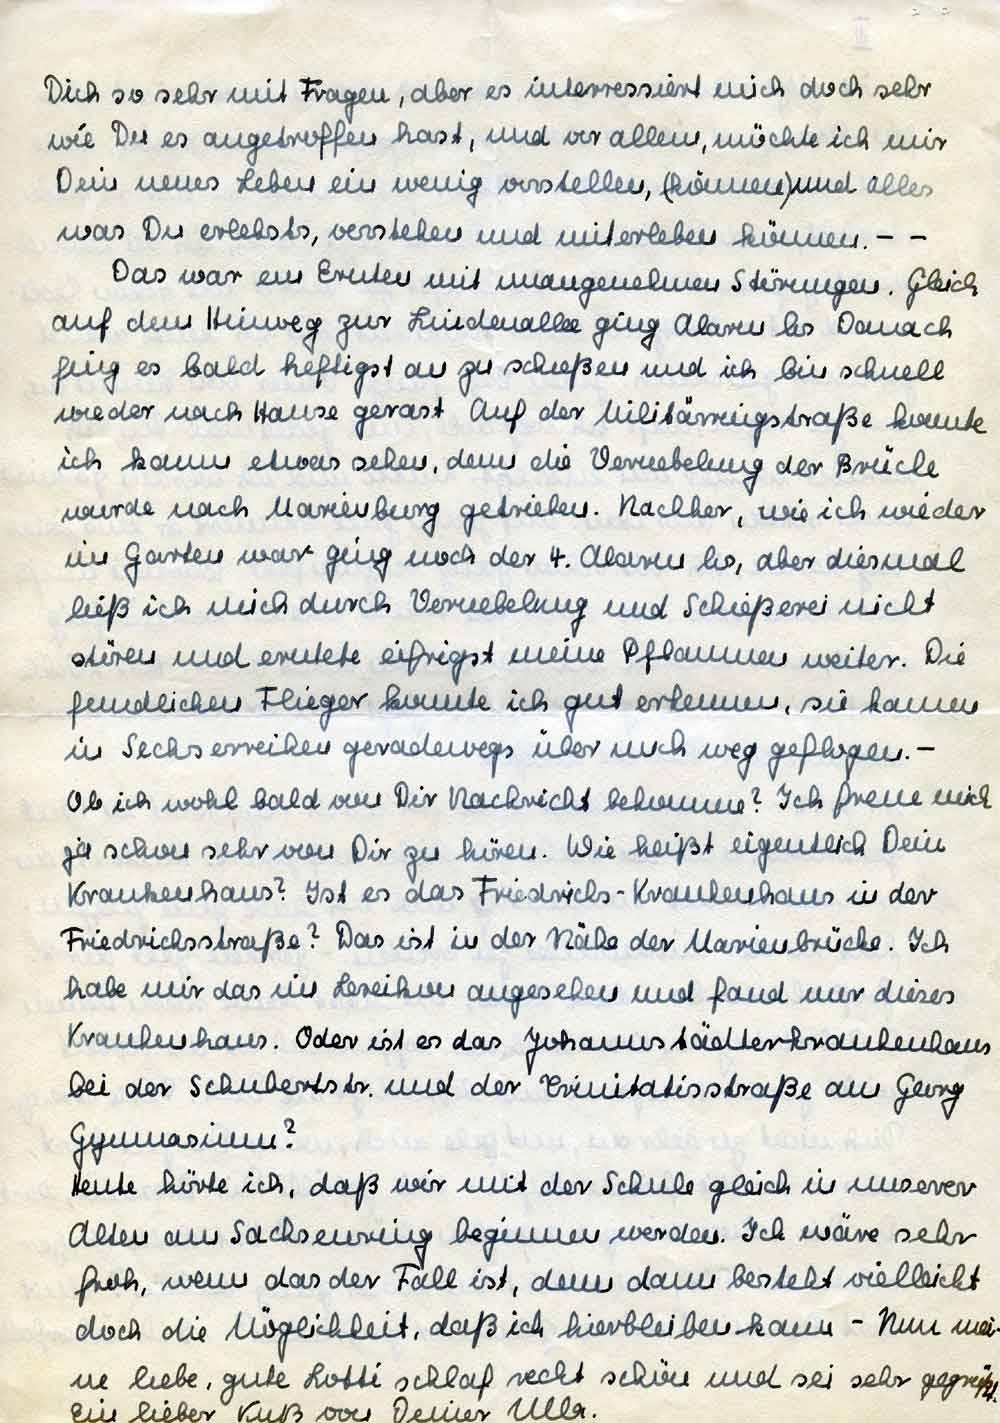 Dich so sehr mit Fragen, aber es interressiert mich doch sehr
wie Du es angetroffen hast, und vor allem, möchte ich mir
Dein neues Leben ein wenig vorstellen, (können) und alles
was Du erlebsts, verstehen und miterleben können. – –
Das war ein Ernten mit unangenehmen Störungen. Gleich
auf dem Hinweg zur Lindenallee ging Alarm los Danach
fing es bald heftigst an zu schießen und ich bin schnell
wieder nach Hause gerast Auf der Militärringstraße konnte
ich kaum etwas sehen, denn die Vernebelung der Brücke
wurde nach Marienburg getrieben. Nachher, wie ich wieder
im Garten war ging noch der 4. Alarm los, aber diesmal
ließ ich mich durch Vernebelung und Schießerei nicht
stören und erntete eifrigst meine Pflaumen weiter. Die
feindlichen Flieger konnte ich gut erkennen, sie kamen
in Sechserreihen geradewegs über mich weg geflogen. –
Ob ich wohl bald von Dir Nachricht bekomme? Ich freue mich
ja schon sehr von Dir zu hören. Wie heißt eigentlich Dein
Krankenhaus? Ist es das Friedrichs-Krankenhaus in der
Friedrichsstraße? Das ist in der Nähe der Marienbrücke. Ich
habe mir das im Lexikon angesehen und fand nur dieses
Krankenhaus. Oder ist es das Johannstädterkrankenhaus
bei der Schubertstr. und der Trinitatisstraße am Georg
Gymnasium?
Heute hörte ich, daß wir mit der Schule gleich in unserer
Alten am Sachsenring beginnen werden. Ich wäre sehr
froh, wenn das der Fall ist, denn dann besteht vielleicht
doch die Möglichkeit, daß ich hierbleiben kann – Nun mei-
ne liebe, gute Lotti schlaf recht schön und sei sehr gegrüßt.
Ein lieber Kuß von Deiner Ulla.